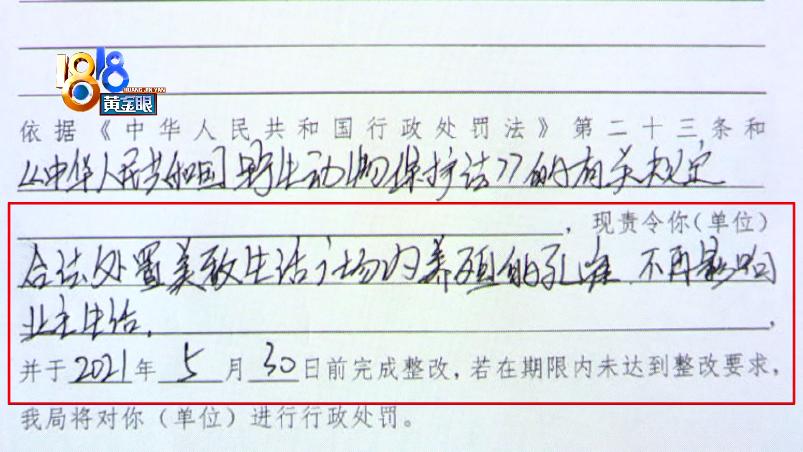 1818
HUANG JIN YAN
黄金眼
依据《中华人民共和国行政处罚法》第二十三条和
《中华人民共和国野生动物保护法》的有关规定
，现责令你(单位)
合法处置美致生活广场内养殖的孔雀、不再影响
业主生活.
，
并于2021年5月30日前完成整改，若在期限内未达到整改要求，
我局将对你（单位）进行行政处罚。